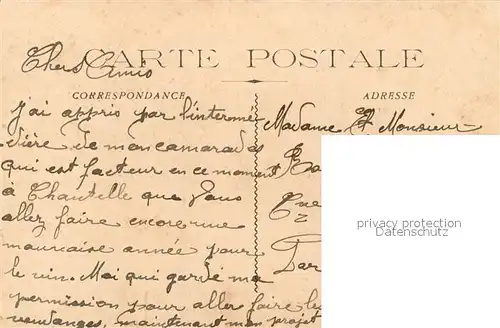 CARTE POSTALE
Chers Amis
CORRESPONDANCE
ADRESSE
j'ai appris par l'intermé
dière de mon camarade
qui est facteur en ce moment
à Chantelle que Vous
allez faire encore une
mauvaise année pour
le vin. Moi qui gardé ma
permission pour aller faire les
vendanges, maintenant mon projet
Madame et Monsieur
privacy protection
Datenschutz